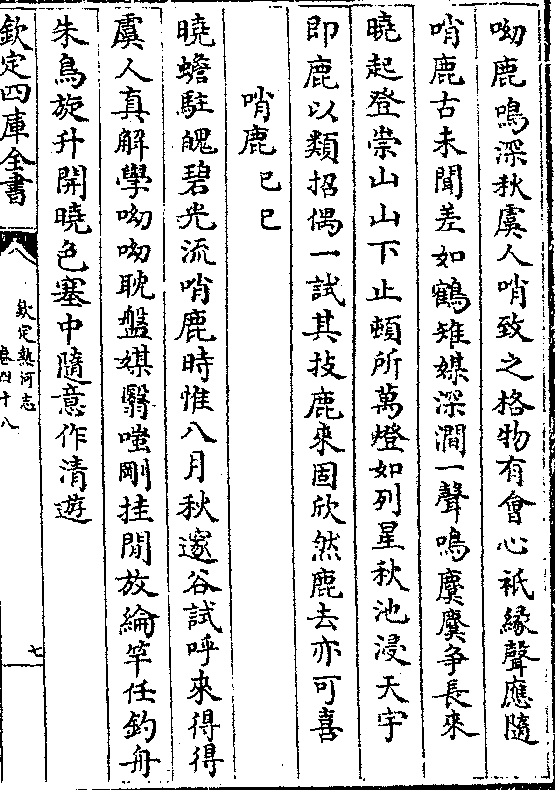 呦鹿鳴深秋虞人哨致之格物有會心祇縁聲應隨
哨鹿古未聞差如鶴雉媒深澗一聲鳴麌麌爭長來
曉起登崇山山下止頓所萬燈如列星秋池浸天宇
即鹿以類招偶一試其技鹿來固欣然鹿去亦可喜
哨鹿己巳
曉蟾駐魄碧光流哨鹿時惟八月秋邃谷試呼來得得
虞人真解學呦呦耽盤媒翳嗤剛挂閒放綸竿任釣舟
朱鳥旋升開曉色塞中隨意作清遊
欽定四庫全書
欽定熱河志
卷四十八
七